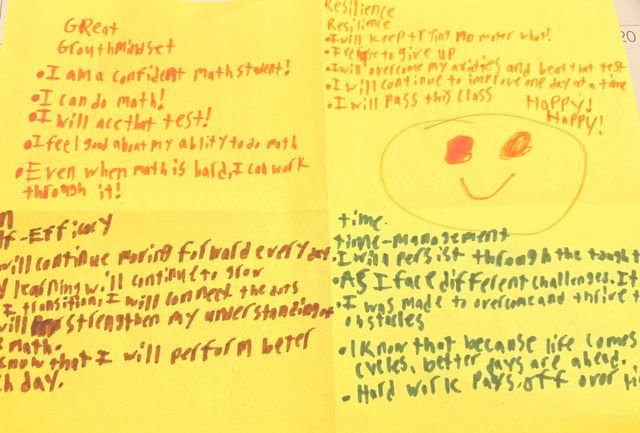 GReat
Grouthmindset
•I am a confident math student!
•I can do math!
•I will ace that test!
•I feel good about my ability to do math
•Even when math is hard, I can work
through it!
Resilience
Resilience
•I will keep trying no mater what!
•I refuse to give up
•I will overcome my axieties and beat that test
•I will continue to improve one day at a time
•I will Pass this class
Happy!
Happy!
n
lf-Efficacy
will continue moving forward every day
y learning will continue to grow
I transition, I will connect the dots
will strengthen my understanding of
math.
know that I will perform beter
ch day.
time
time-management
•I will persist through the tought
•As I face different challenges. It
•I was made to overcome and thrive t
obstacles
•I Know that because life comes
cycles, better days are ahead.
•Hard work pays off over ti
20